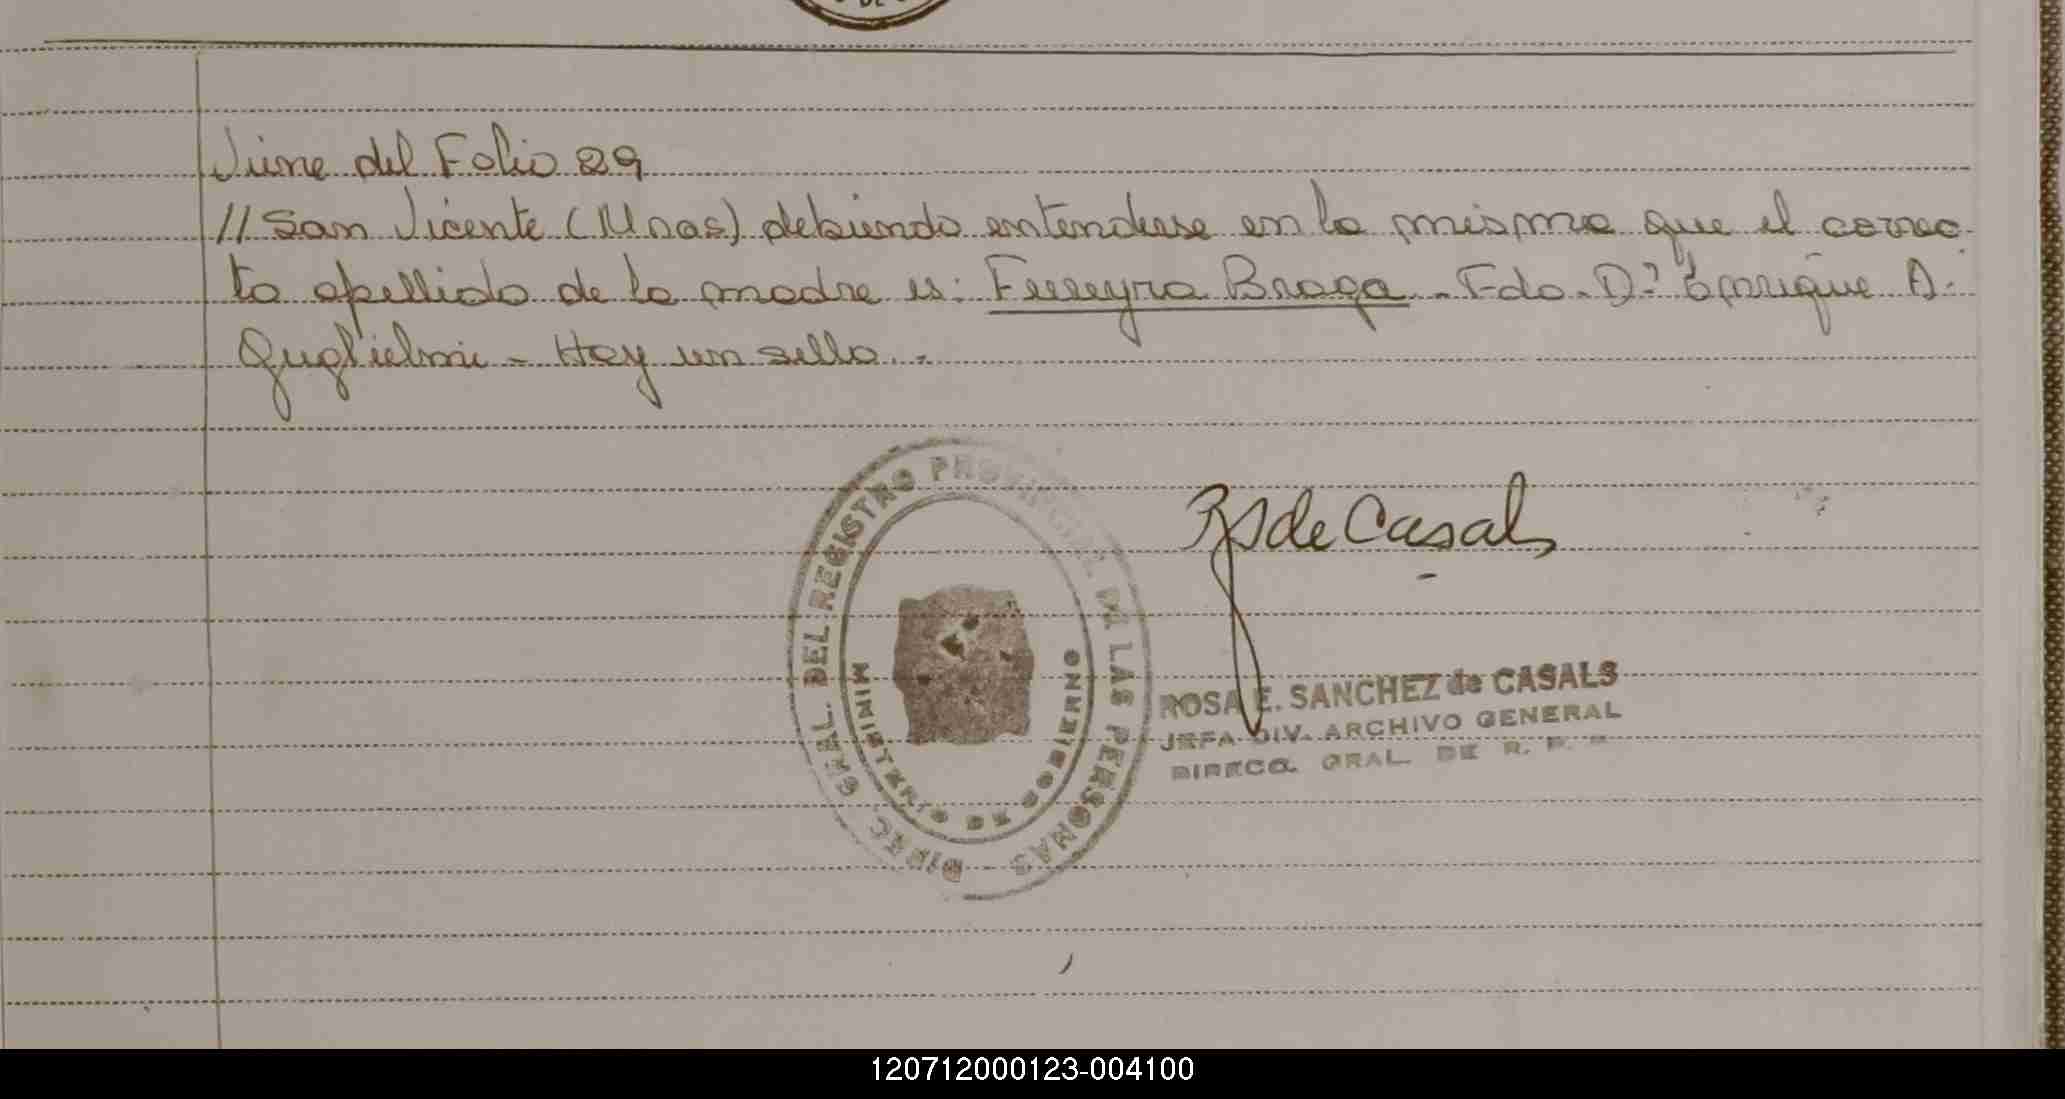 DE
Viene del Folio 29
// San Vicente (Mnes) debiendo entenderse en la misma que el correc
to apellido de la madre es: Ferreyra Braga - Fdo. Dº Enrique A.
Guglielmi - Hay un sello.-
DIREC. GRAL. DEL REGISTRO PROVINCIAL DE LAS PERSONAS
MINISTERIO DE GOBIERNO
RS de Casals
ROSA E. SANCHEZ de CASALS
JEFA DIV. ARCHIVO GENERAL
DIRECC. GRAL. DE R. P.
120712000123-004100